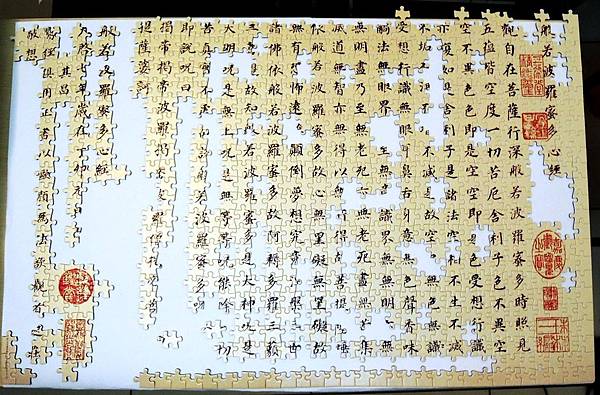 般若波羅蜜多心經
觀自在菩薩行深般若波羅蜜多時照見
五蘊皆空度一切苦厄舍利子色不異空
空不異色色即是空空即是色受想行識
亦復如是舍利子是諸法空相不生不滅
不垢不淨不增不減是故空無色無
受想行識無眼耳鼻舌身意無色聲香味
觸法無眼界至無識界無無明無
無明盡乃至無老死亦無老死盡無苦集
滅道無智亦無得以無所得故菩提埵
依般若波羅蜜多故心無罣礙無罣礙故
無有恐怖遠離顛倒夢想究竟槃三世
諸佛依般若波羅蜜多故阿耨多羅三藐
三是故知般若波羅蜜多是大神咒是
大明咒是無上咒是無等等咒能除切
苦真實不虛故說般若波羅蜜多咒
即說咒曰
揭帝揭帝波羅揭帝波羅僧揭帝菩
提薩婆訶
般若波羅蜜多心經
天啓七年歲在丁卯
其昌
寫經須用正書以歐顏為法觀者
放想